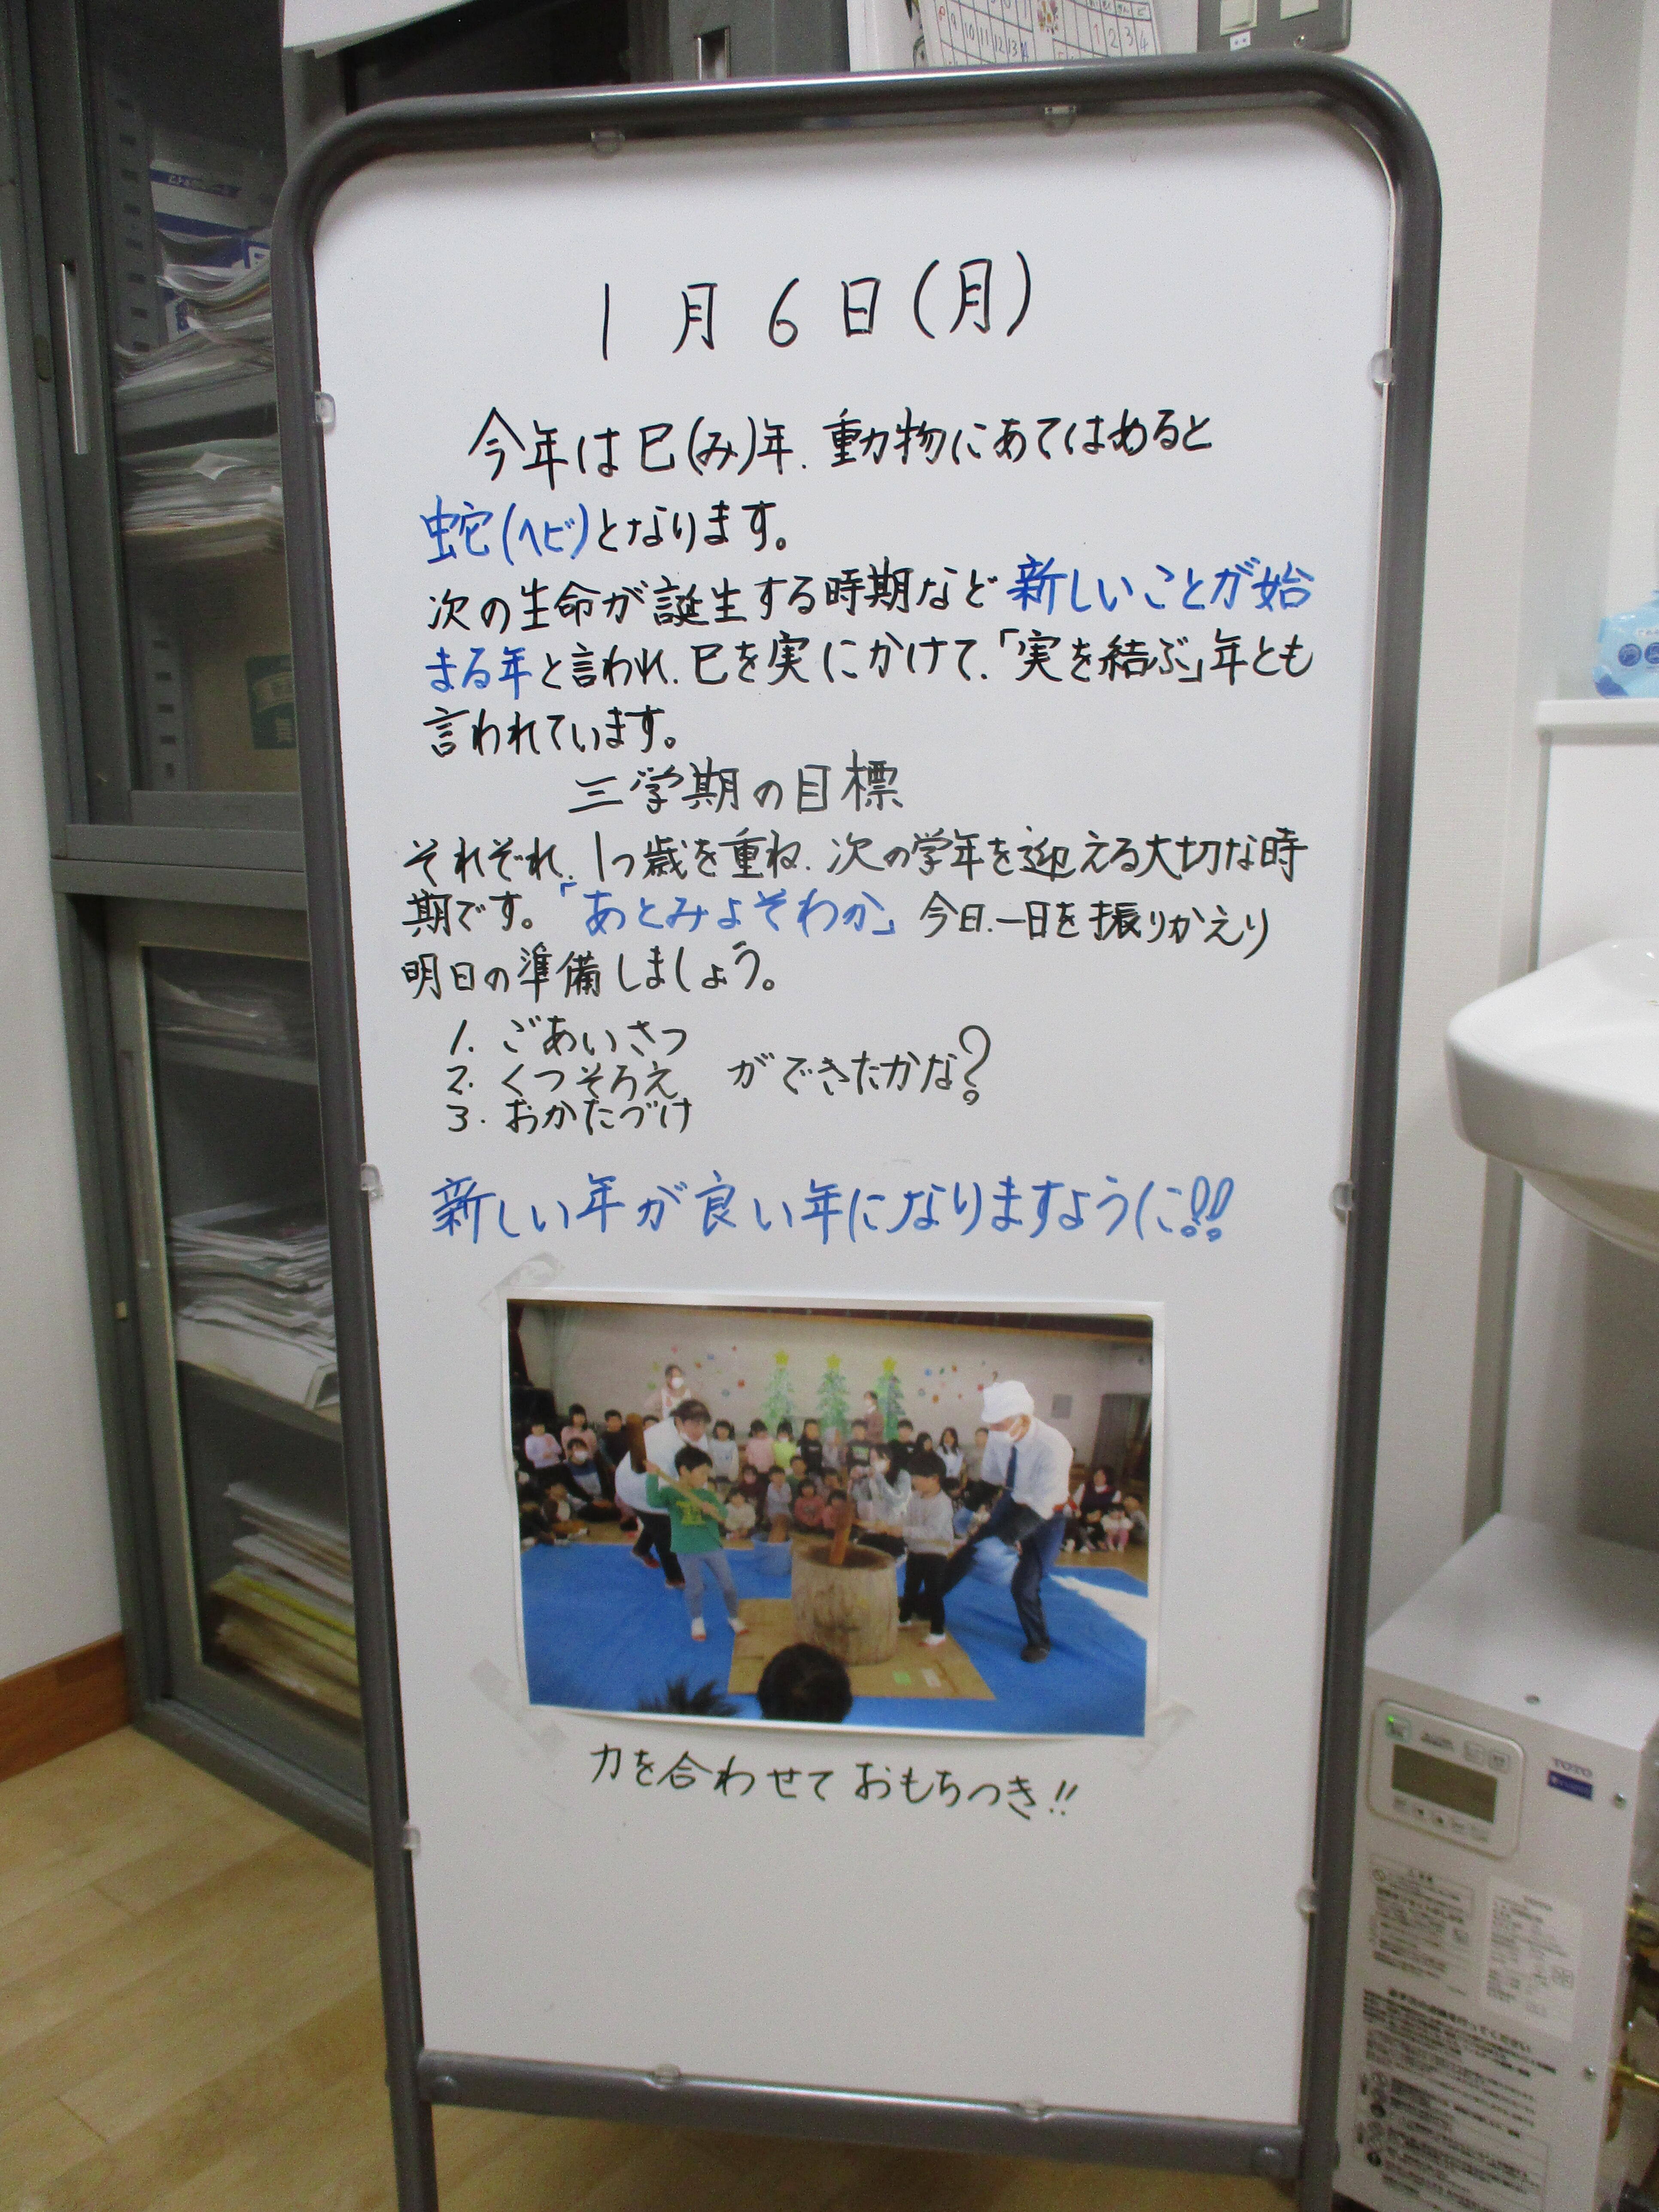 1月6日(月)
今年は巳(み)年.動物にあてはめると
蛇(ヘビ)となります。
次の生命が誕生する時期など新しいことが始
まる年と言われ.巳を実にかけて.「実を結ぶ」年とも
言われています。
三学期の目標
それぞれ.1つ歳を重ね.次の学年を迎える大切な時
期です。「あとみよそわか」今日.一日を振りかえり
明日の準備しましょう。
1. ごあいさつ
2. くつそろえ ができたかな?
3. おかたづけ
新しい年が良い年になりますように!!
力を合わせておもちつき!!
TOTO